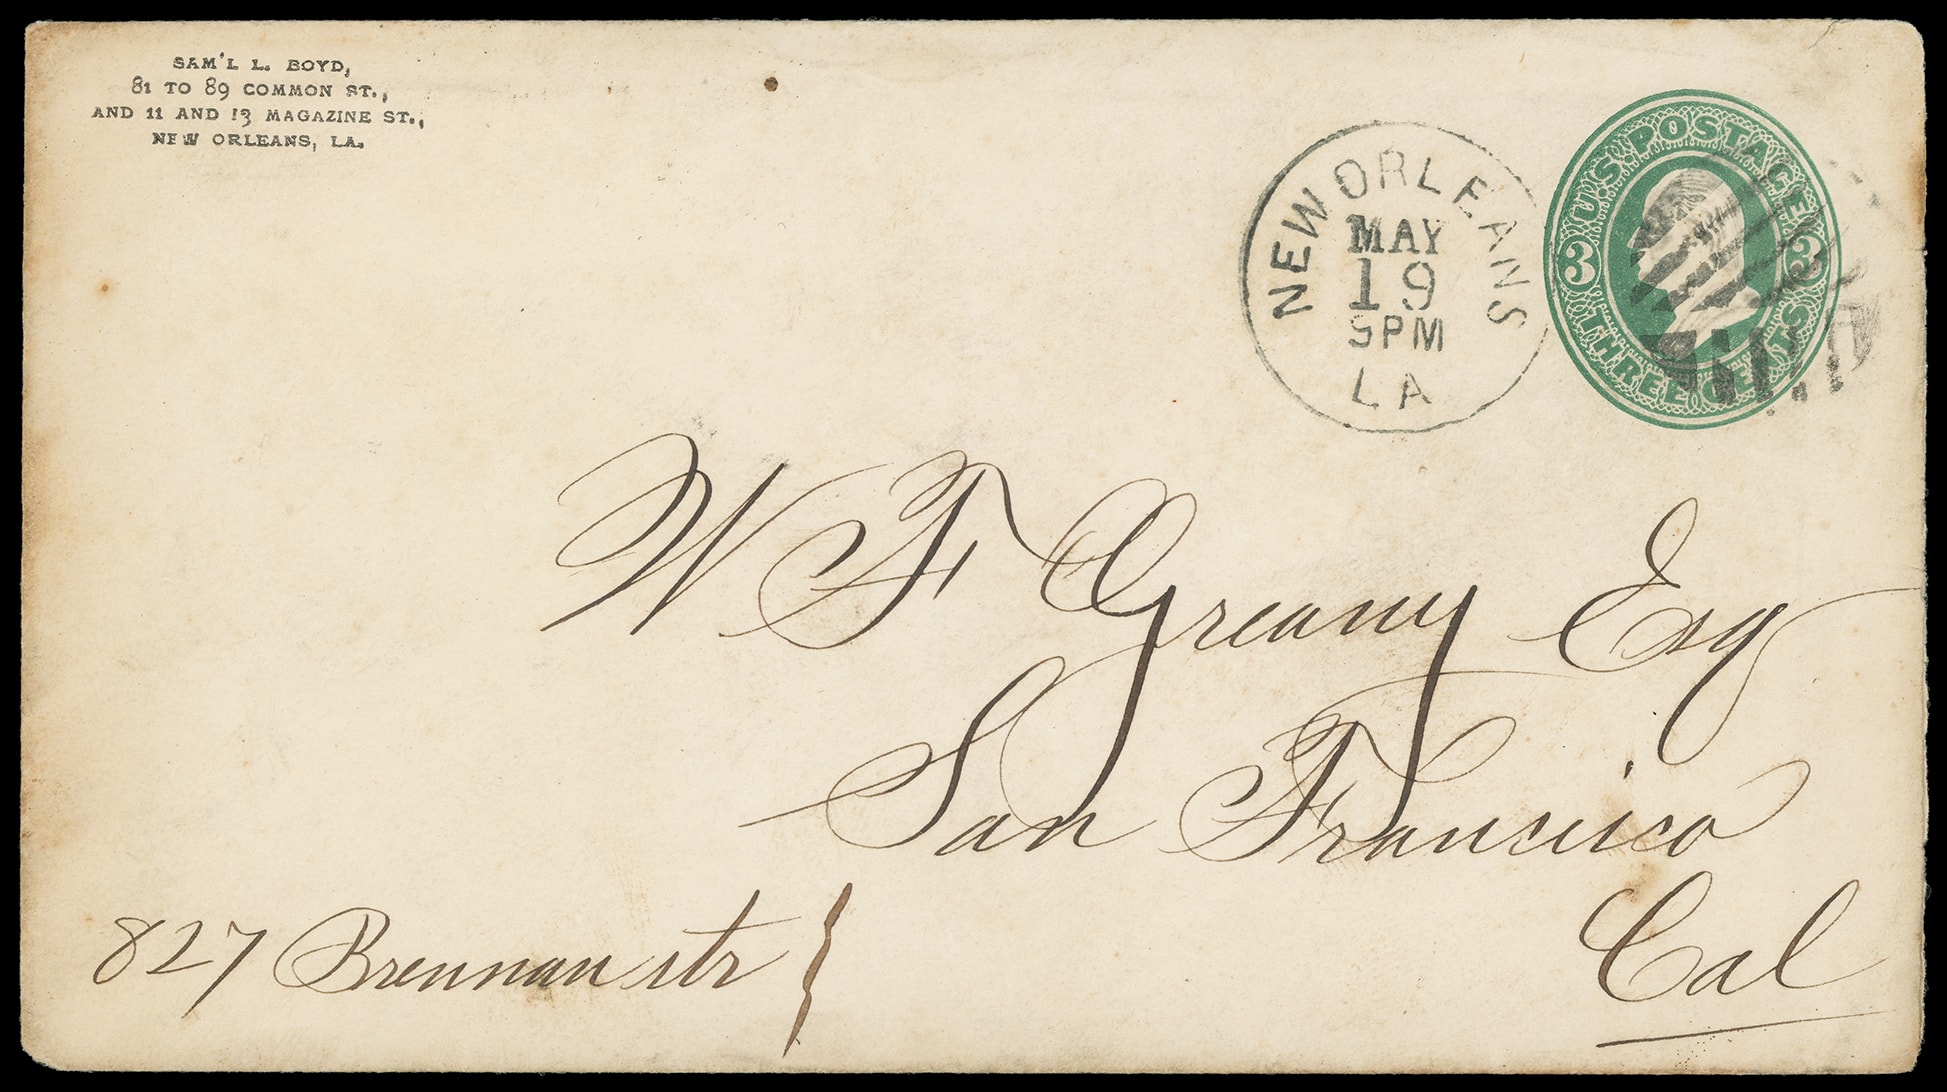 SAM'L L. BOYD,
81 TO 89 COMMON ST.,
AND 11 AND 13 MAGAZINE ST.,
NEW ORLEANS, LA.
NEW ORLEANS
MAY
19
5PM
LA
U.S. POSTAGE
3 3
THREE CENTS
W F Greany Esq
San Francisco
Cal
827 Brennan str